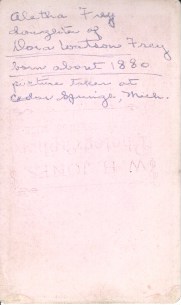 Aletha Frey
daughter of
Dora Watson Frey
born about 1880
picture taken at
Cedar Springs, Mich.